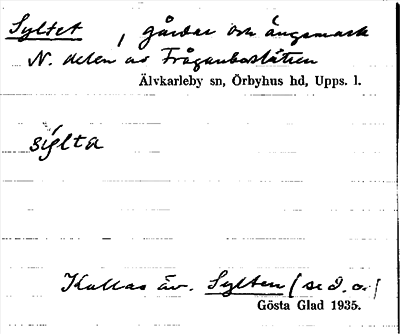 Syltet, gårdar och ängsmark
N. delen av
Älvkarleby sn, Örbyhus hd, Upps. l.
sýlta
Kallas äv. Sylten (se d. o.)
Gösta Glad 1935.